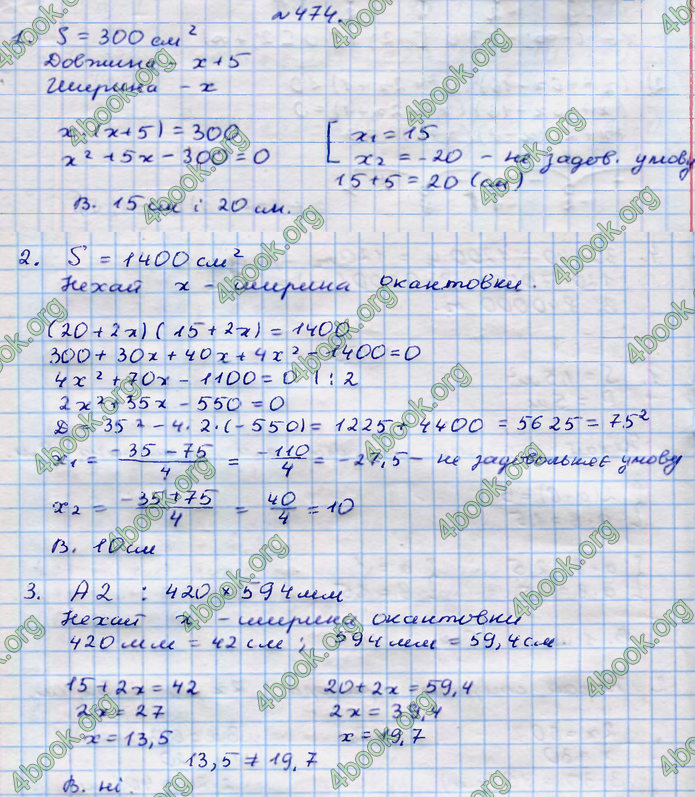 №474.
1. S = 300 см²
Довжина - x+5
Ширина - x
x·(x+5) = 300
x² + 5x - 300 = 0
[ x₁ = 15
x₂ = -20 - не задов. умову
15 + 5 = 20 (см)
В. 15 см і 20 см.
2. S = 1400 см²
Нехай x - ширина окантовки.
(20+2x)(15+2x) = 1400
300 + 30x + 40x + 4x² - 1400 = 0
4x² + 70x - 1100 = 0 | : 2
2x² + 35x - 550 = 0
D = 35² - 4·2·(-550) = 1225 + 4400 = 5625 = 75²
x₁ = (-35 - 75)/4 = -110/4 = -27,5 - не задовольняє умову
x₂ = (-35 + 75)/4 = 40/4 = 10
В. 10 см
3. А2 : 420 × 594 мм
Нехай x - ширина окантовки
420 мм = 42 см ; 594 мм = 59,4 см.
15 + 2x = 42
2x = 27
x = 13,5
20 + 2x = 59,4
2x = 39,4
x = 19,7
13,5 ≠ 19,7
В. ні.
4book.org